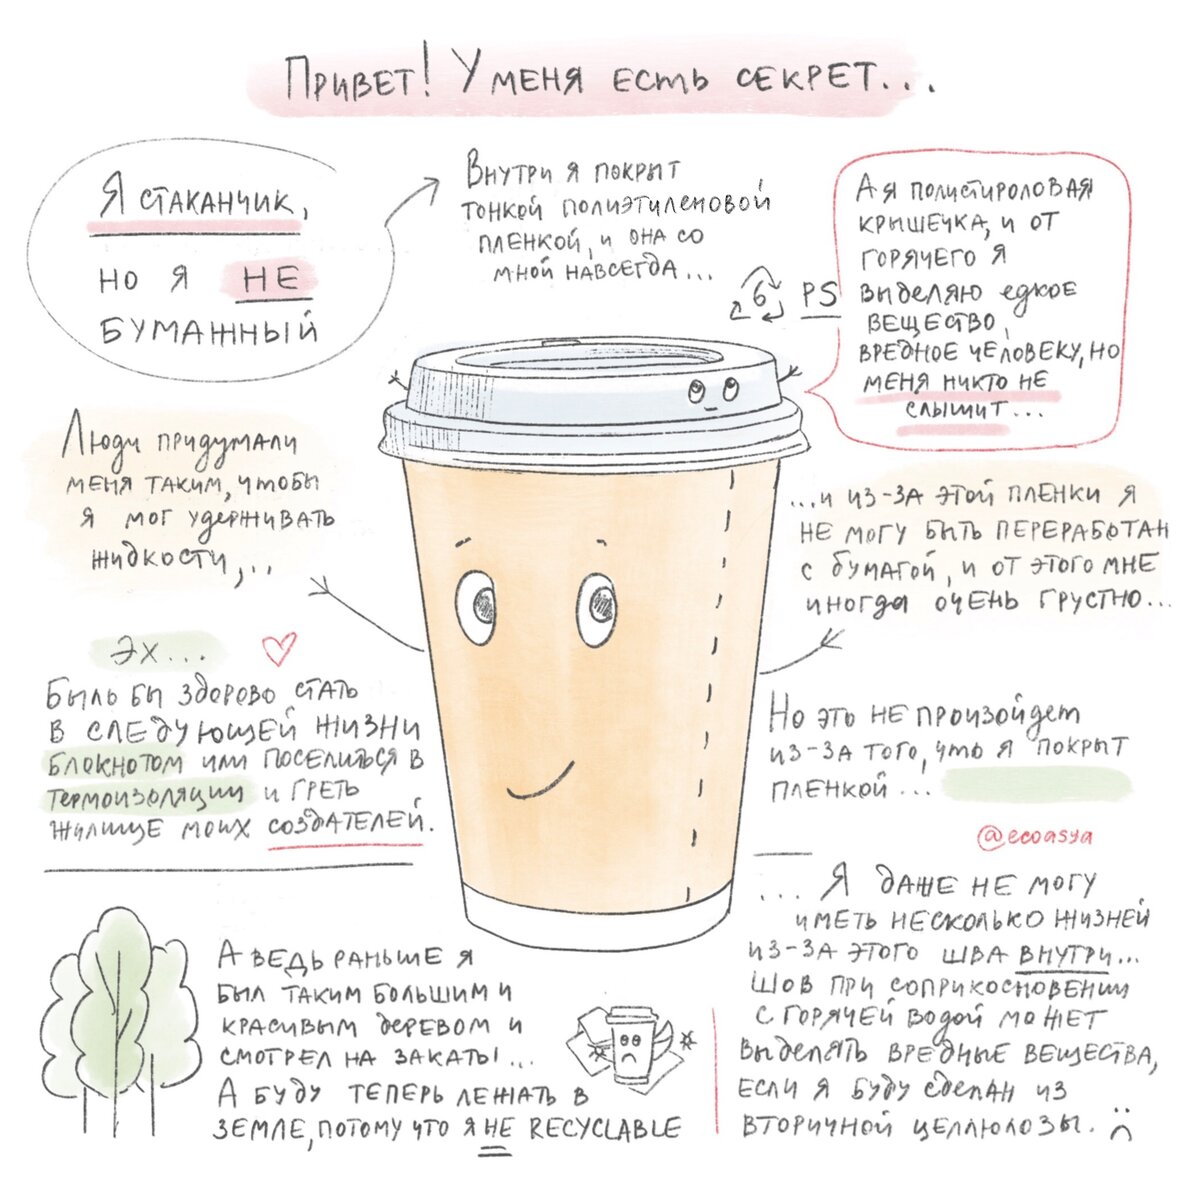 Привет! У меня есть секрет...
Я стаканчик,
но я НЕ
бумажный
Внутри я покрыт
тонкой полиэтиленовой
пленкой, и она со
мной навсегда...
6 PS
А я полистироловая
крышечка, и от
горячего я
выделяю едкое
вещество,
вредное человеку, но
меня никто не
слышит...
Люди придумали
меня таким, чтобы
я мог удерживать
жидкости,...
...и из-за этой пленки я
не могу быть переработан
с бумагой, и от этого мне
иногда очень грустно...
Эх...
Было бы здорово стать
в следующей жизни
блокнотом или поселиться в
термоизоляции и греть
жилище моих создателей.
Но это не произойдет
из-за того, что я покрыт
пленкой...
@ecoasya
...Я даже не могу
иметь несколько жизней
из-за этого шва внутри...
Шов при соприкосновении
с горячей водой может
выделять вредные вещества,
если я буду сделан из
вторичной целлюлозы.
А ведь раньше я
был таким большим и
красивым деревом и
смотрел на закаты!...
А буду теперь лежать в
земле, потому что я НЕ RECYCLABLE